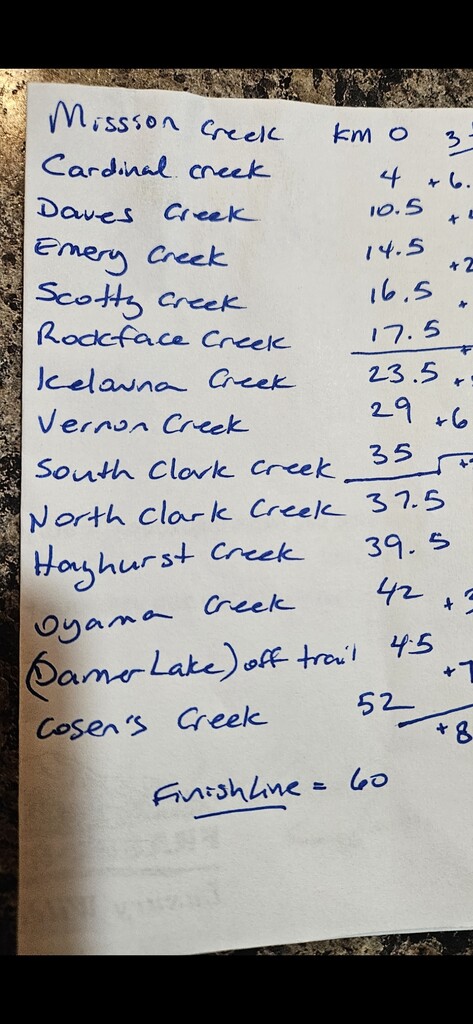 Missson Creek km 0 3
Cardinal creek 4 + 6.
Daves Creek 10.5 +
Emery Creek 14.5 +2
Scotty Creek 16.5 +
Rockface Creek 17.5 +
Kelowna Creek 23.5 +
Vernon Creek 29 +6
South Clark Creek 35 +
North Clark Creek 37.5
Hayhurst Creek 39.5
Oyama Creek 42 +3
(Damer Lake) off trail 45 +7
Cosen's Creek 52 +8
Finishline = 60